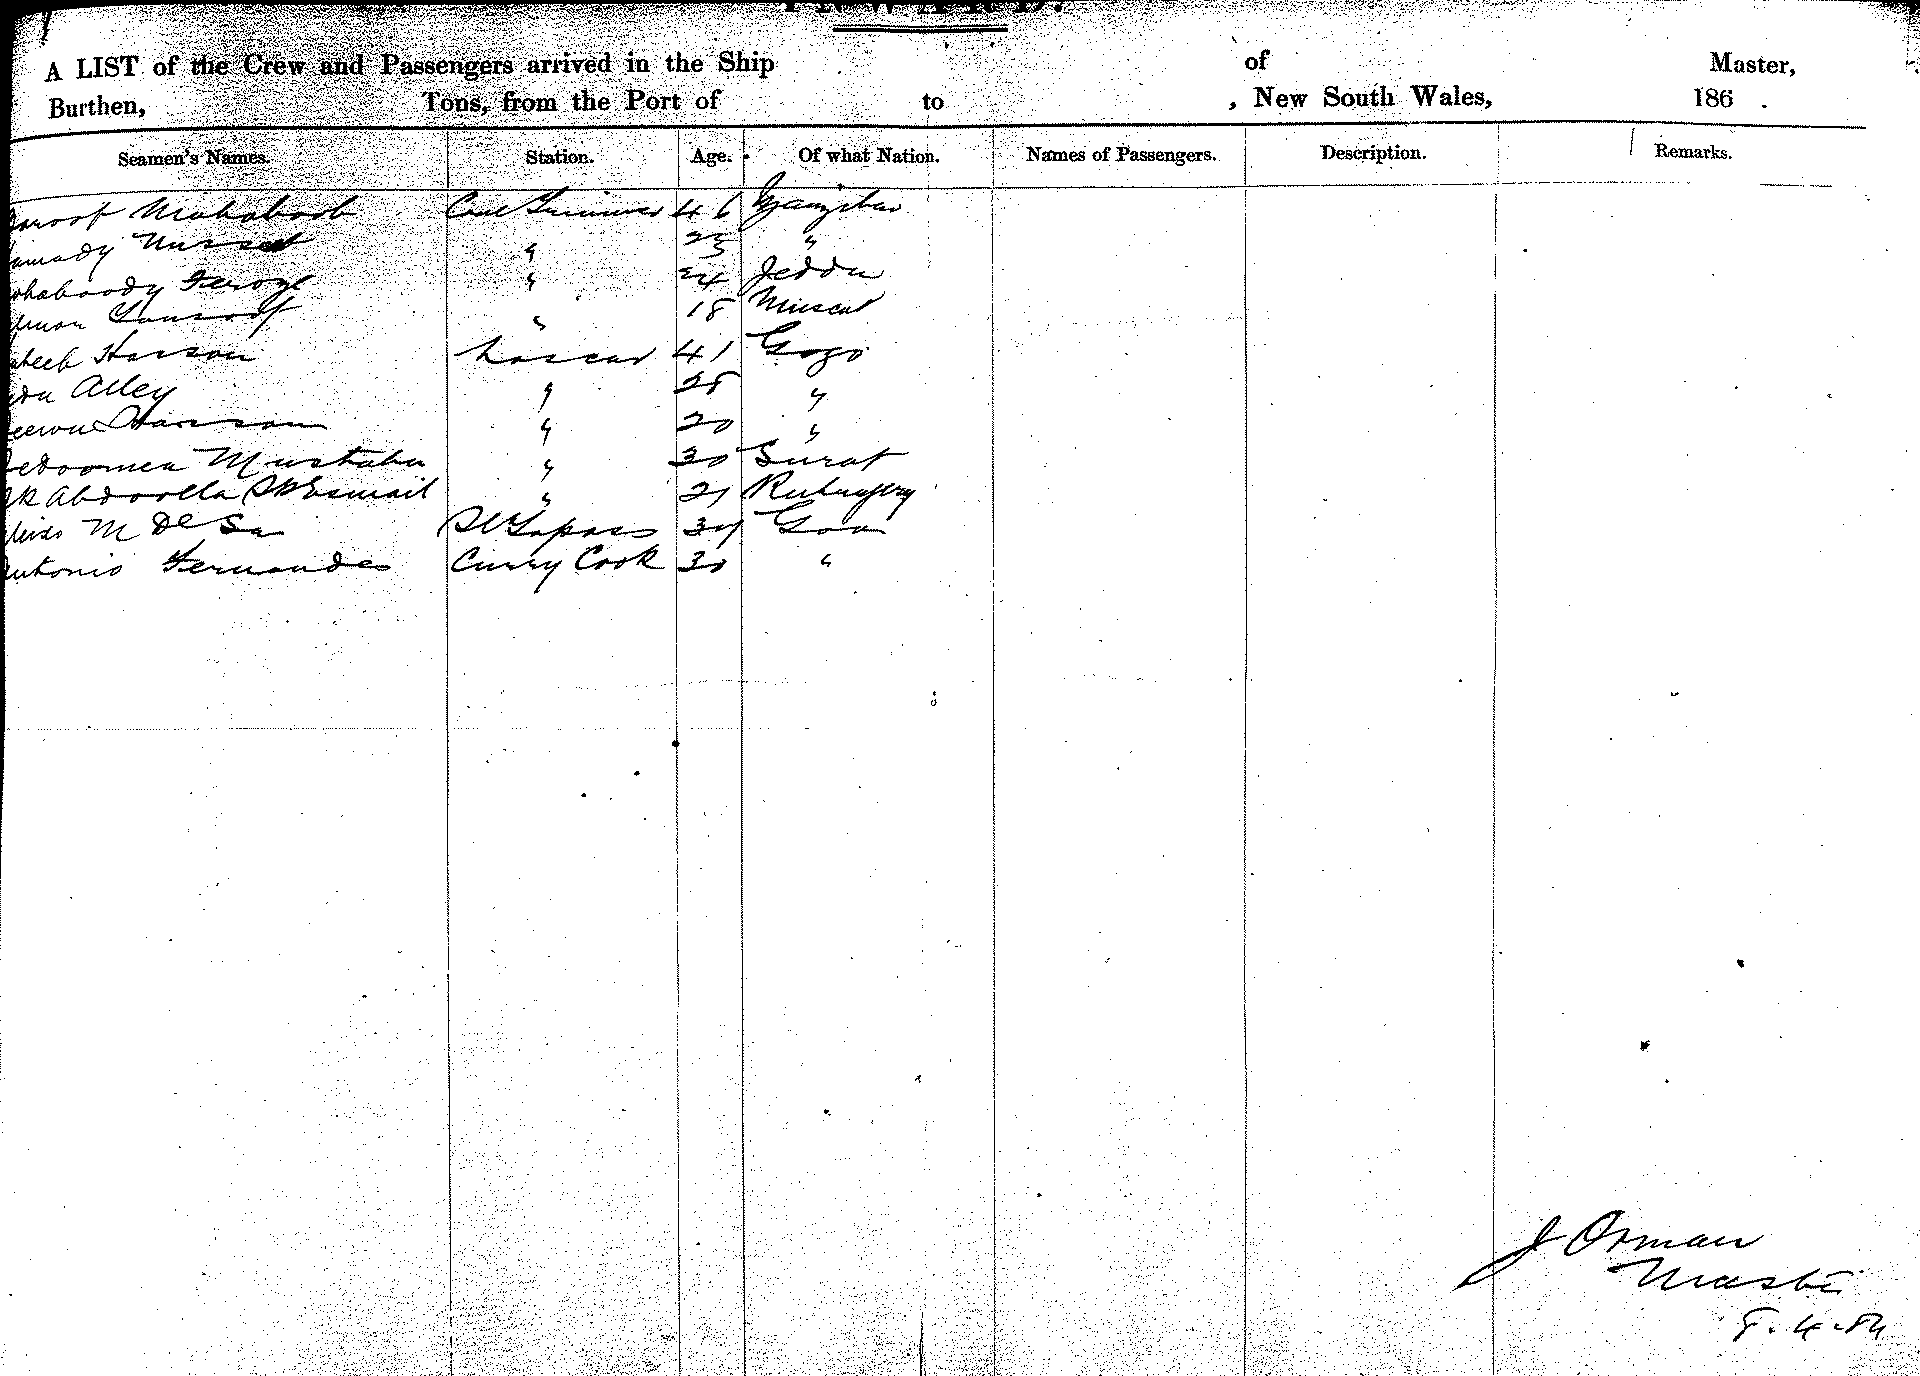 A LIST of the Crew and Passengers arrived in the Ship of Master,
Burthen, Tons, from the Port of to , New South Wales, 186 .
Seamen's Names. Station. Age. Of what Nation. Names of Passengers. Description. Remarks.
Mahaboob Coal Trimmer 46 Zanzibar
" 25 "
Feroze " 24 Jedda
" 18 Muscat
Hassan Lascar 41 Gogo
Alley " 28 "
Hassan " 20 "
Mustaba " 30 Surat
Abdoolla Esmail " 21
M De Sa Topass 34 Goa
Antonio Fernandes Curry Cook 30 "
J Orman
Master
8.4.84